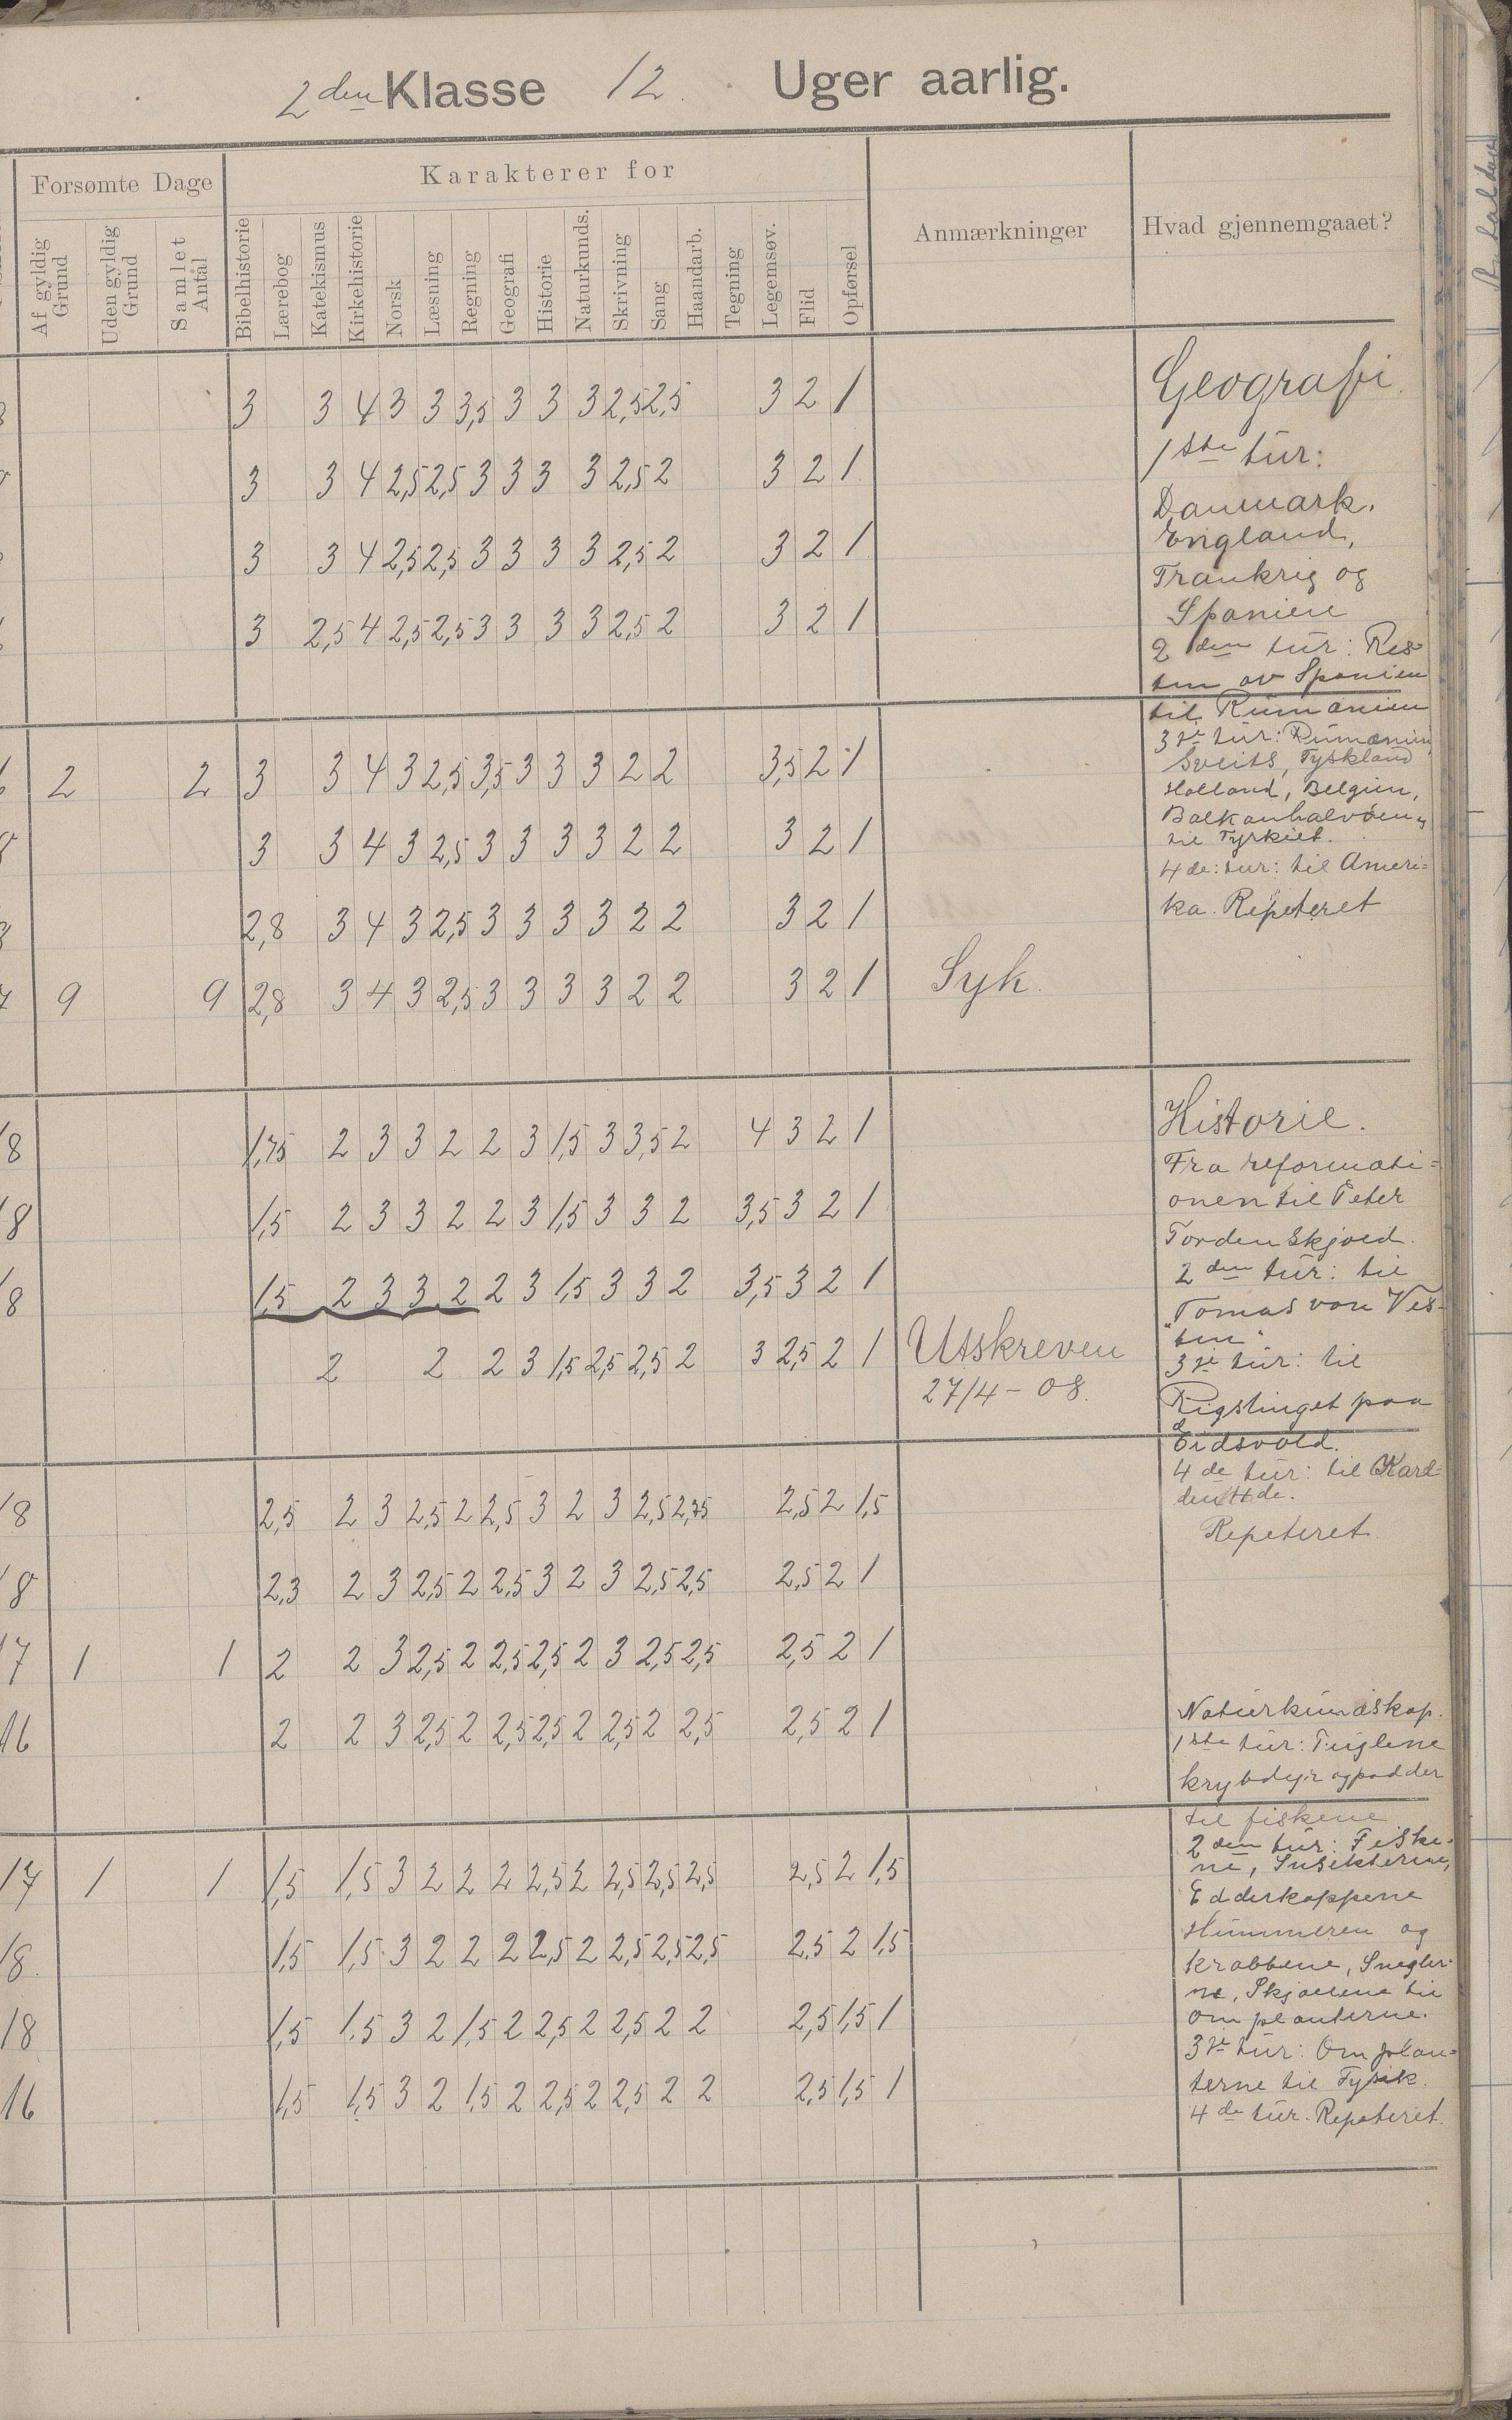 2den Klasse 12 Uger aarlig.
Forsømte Dage Karakterer for Anmærkninger Hvad gjennemgaaet?
Af gyldig Grund Uden gyldig Grund Samlet Antal Bibelhistorie Lærebog Katekismus Kirkehistorie Norsk Læsning Regning Geografi Historie Naturkunds. Skrivning Sang Haandarb. Tegning Legemsøv. Flid Opførsel
3 3 4 3 3 3,5 3 3 3 2,5 2,5 3 2 1
3 3 4 2,5 2,5 3 3 3 3 2,5 2 3 2 1
3 3 4 2,5 2,5 3 3 3 3 2,5 2 3 2 1
3 2,5 4 2,5 2,5 3 3 3 3 2,5 2 3 2 1
2 2 3 3 4 3 2,5 3,5 3 3 3 2 2 3,5 2 1
3 3 4 3 2,5 3 3 3 3 2 2 3 2 1
2,8 3 4 3 2,5 3 3 3 3 2 2 3 2 1
9 9 2,8 3 4 3 2,5 3 3 3 3 2 2 3 2 1 Syk.
18 1,75 2 3 3 2 2 3 1,5 3 3,5 2 4 3 2 1
18 1,5 2 3 3 2 2 3 1,5 3 3 2 3,5 3 2 1
18 1,5 2 3 3 2 2 3 1,5 3 3 2 3,5 3 2 1
2 2 2 3 1,5 2,5 2,5 2 3 2,5 2 1 Utskreven
27/4 - 08.
18 2,5 2 3 2,5 2 2,5 3 2 3 2,5 2,75 2,5 2 1,5
18 2,3 2 3 2,5 2 2,5 3 2 3 2,5 2,5 2,5 2 1
17 1 1 2 2 3 2,5 2 2,5 2,5 2 3 2,5 2,5 2,5 2 1
16 2 2 3 2,5 2 2,5 2,5 2 2,5 2 2,5 2,5 2 1
17 1 1 1,5 1,5 3 2 2 2 2,5 2 2,5 2,5 2,5 2,5 2 1,5
18. 1,5 1,5 3 2 2 2 2,5 2 2,5 2,5 2,5 2,5 2 1,5
18 1,5 1,5 3 2 1,5 2 2,5 2 2,5 2 2 2,5 1,5 1
16 1,5 1,5 3 2 1,5 2 2,5 2 2,5 2 2 2,5 1,5 1
Geografi.
1ste tur:
Danmark.
England,
Frankrig og
Spanien
2den tur: Res=
ten av Spanien
til Rumænien
3je tur: Rumænien
Sveits, Tyskland
Holland, Belgien,
Balkanhalvøen
til Tyrkiet.
4de: tur: til Ameri=
ka. Repeteret
Historie.
Fra reformati=
onen til Peter
Tordenskjold.
2den tur: til
"Tomas von Ves=
ten"
3je tur: til
Rigstinget paa
Eidsvold.
4de tur: til Karl
den 14de.
Repeteret.
Naturkundskap.
1ste tur: Fuglene
krybdyr og padder
til fiskene
2den tur: Fiske-
ne, Insekterne,
Edderkoppene
Hummeren og
Krabbene, Snegler-
ne, Skjællene til
om planterne.
3je tur: Om plan=
terne til Fysik.
4de tur. Repeteret.